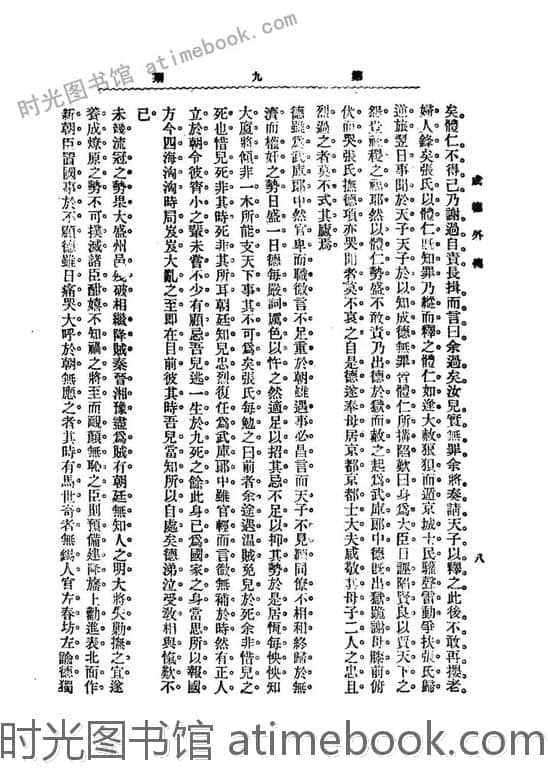 時光图书馆 atimebook.com
第九期
成德外傳
八
矣體仁不得已乃謝過自責長揖而言曰余過矣汝兒實無罪余將奏請天子以釋之此後不敢再攖老
婦人鋒矣張氏以體仁既知罪乃縱而釋之體仁如逢大赦狼狽而遁京城士民驩聲雷動爭扶張氏歸
逆旅翌日事聞於天子天子於以知成德無罪皆體仁所搆陷歎曰身爲大臣日誣陷賢良以賈天下之
怨豈社稷之福耶然以體仁勢盛不敢責乃出德於獄而赦之起爲武庫郎中德既出獄跪謝母膝前俯
伏而哭張氏撫德項亦哭聞者莫不哀之自是德遂奉母居京都京都士大夫咸敬其母子二人之忠且
烈過之者莫不式其廬焉
德雖爲武庫郎中然官卑而職微言不足重於朝雖遇事必昌言而天子不見同僚不相和終歸於無
濟而權奸之勢日盛一日德每嚴詞厲色以忤之然適足以招其忌不足以抑其勢於是居恆每怏怏知
大廈將傾非一木所能支天下事其不可爲矣張氏每勉之曰前者余途遇温賊兔兒於死余非惜兒之
死也惜兒死非其時死非其所耳朝廷知兒忠烈復任爲武庫郎中雖官輕而言微無補於時然有正人
立於朝令彼宵小之輩未嘗不少有顧忌吾兒逃一生於九死之餘此身已爲國家之身當思所以報國
方今四海洶洶時局岌岌大亂之至即在目前彼其時吾兒當知所以自處矣德涕泣受敎相與愾歎不
已
未幾流冦之勢果大盛州邑殘破相繼降賊秦晉湘豫盡爲賊有朝廷無知人之明大將失勦撫之宜遂
養成燎原之勢不可撲滅諸臣酣嬉不知禍之將至而靦顏無恥之臣則預備建降旛上勸進表北面而作
新朝臣置國事於不顧德雖日痛哭大呼於朝無應之者其時有馬世奇者無錫人官左春坊左諭德獨
时光图书馆 atimebook.com